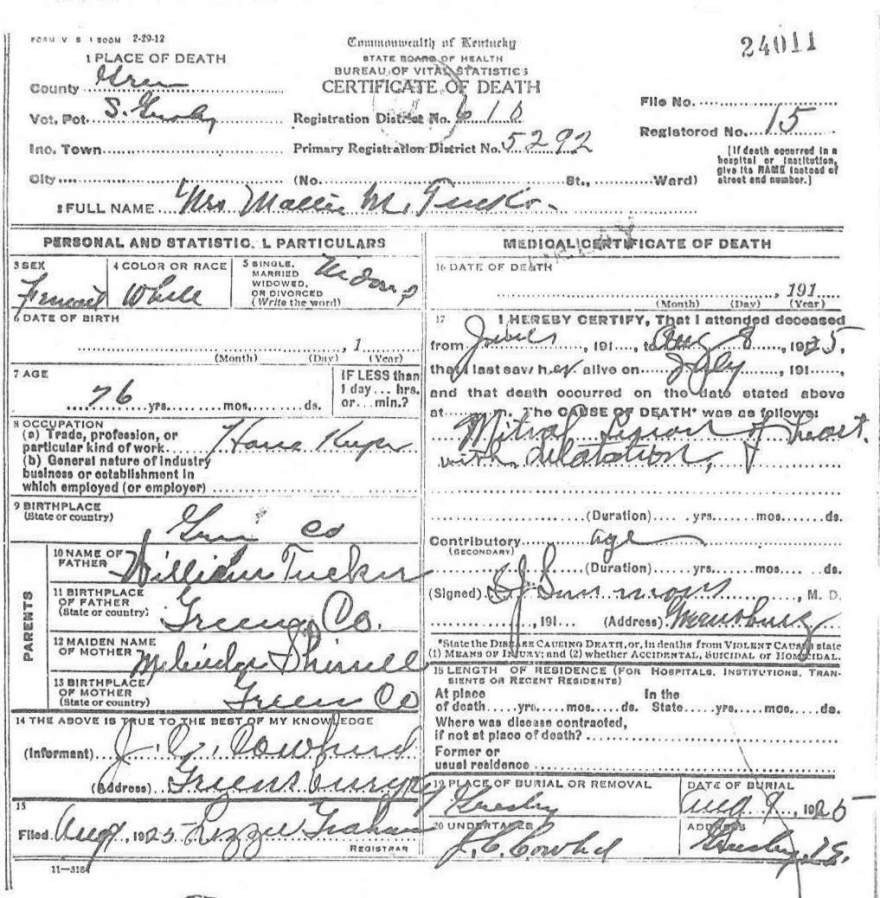 FORM V S 1 500M 2-29-12
Commonwealth of Kentucky
24011
1 PLACE OF DEATH
STATE BOARD OF HEALTH
BUREAU OF VITAL STATISTICS
CERTIFICATE OF DEATH
County
Vot. Pct. S.
Registration District No. 610
File No.
Inc. Town
Primary Registration District No. 5292
Registered No. 15
City (No. St., Ward)
[If death occurred in a hospital or institution, give its NAME instead of street and number.]
2 FULL NAME Mrs Mallie M.
PERSONAL AND STATISTIC L PARTICULARS
3 SEX
4 COLOR OR RACE White
5 SINGLE, MARRIED WIDOWED, OR DIVORCED (Write the word)
6 DATE OF BIRTH
, 1
(Month) (Day) (Year)
7 AGE
76 yrs. mos. ds.
IF LESS than 1 day... hrs. or... min.?
8 OCCUPATION
(a) Trade, profession, or particular kind of work House Keeper
(b) General nature of industry business or establishment in which employed (or employer)
9 BIRTHPLACE
(State or country)
Co
PARENTS
10 NAME OF FATHER William Tucker
11 BIRTHPLACE OF FATHER (State or country) Green Co.
12 MAIDEN NAME OF MOTHER
13 BIRTHPLACE OF MOTHER (State or country) Green Co
14 THE ABOVE IS TRUE TO THE BEST OF MY KNOWLEDGE
(Informant) J. C. Cowherd
(Address) Greensburg
15
Filed Aug , 1925 Lizzie Graham
REGISTRAR
11-3184
MEDICAL CERTIFICATE OF DEATH
16 DATE OF DEATH
, 191
(Month) (Day) (Year)
17 I HEREBY CERTIFY, That I attended deceased
from , 191 , to Aug 8 , 1925,
that I last saw her alive on , 191 ,
and that death occurred on the date stated above
at m. The CAUSE OF DEATH* was as follows:
Mitral Lesion of heart.
with dilatation,
(Duration) yrs. mos. ds.
Contributory age
(SECONDARY)
(Duration) yrs. mos. ds.
(Signed) S J Simmons , M. D.
, 191 (Address) Greensburg
*State the DISEASE CAUSING DEATH, or, in deaths from VIOLENT CAUSES state
(1) MEANS OF INJURY; and (2) whether ACCIDENTAL, SUICIDAL or HOMICIDAL.
18 LENGTH OF RESIDENCE (FOR HOSPITALS, INSTITUTIONS, TRANSIENTS OR RECENT RESIDENTS)
At place of death yrs. mos. ds. In the State yrs. mos. ds.
Where was disease contracted,
if not at place of death?
Former or
usual residence
19 PLACE OF BURIAL OR REMOVAL
DATE OF BURIAL
Aug 9, 1925
20 UNDERTAKER
J. C. Cowherd
ADDRESS